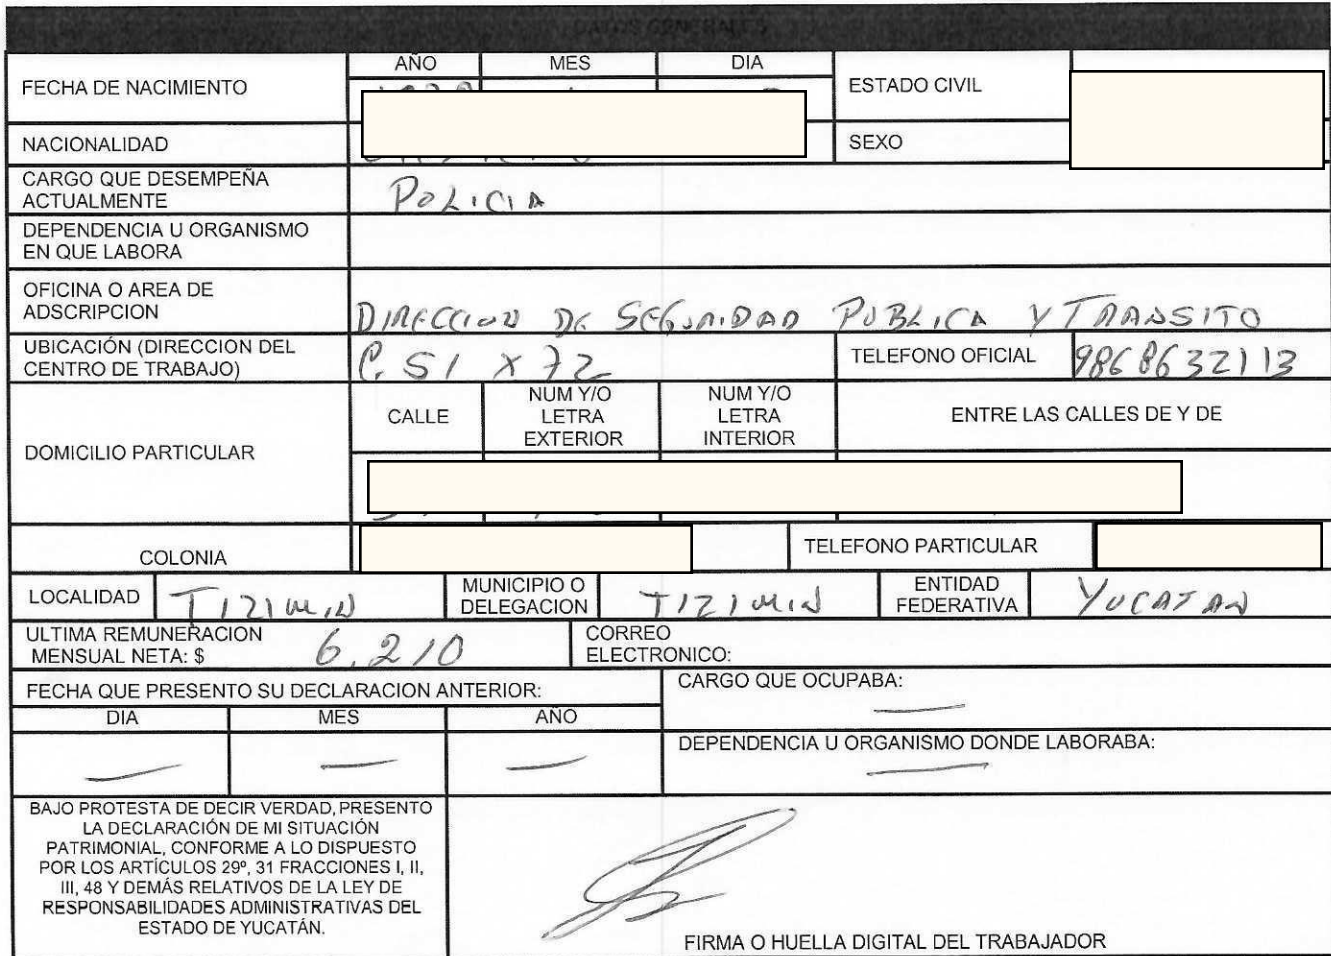 DATOS GENERALES
FECHA DE NACIMIENTO
AÑO MES DIA
ESTADO CIVIL
NACIONALIDAD
SEXO
CARGO QUE DESEMPEÑA
ACTUALMENTE
POLICIA
DEPENDENCIA U ORGANISMO
EN QUE LABORA
OFICINA O AREA DE
ADSCRIPCION
DIRECCION DE SEGURIDAD PUBLICA Y TRANSITO
UBICACIÓN (DIRECCION DEL
CENTRO DE TRABAJO)
C. 51 X 72
TELEFONO OFICIAL 9868632113
DOMICILIO PARTICULAR
CALLE
NUM Y/O
LETRA
EXTERIOR
NUM Y/O
LETRA
INTERIOR
ENTRE LAS CALLES DE Y DE
COLONIA
TELEFONO PARTICULAR
LOCALIDAD TIZIMIN
MUNICIPIO O
DELEGACION
TIZIMIN
ENTIDAD
FEDERATIVA
YUCATAN
ULTIMA REMUNERACION
MENSUAL NETA: $ 6,210
CORREO
ELECTRONICO:
FECHA QUE PRESENTO SU DECLARACION ANTERIOR:
DIA MES AÑO
— — —
CARGO QUE OCUPABA:
—
DEPENDENCIA U ORGANISMO DONDE LABORABA:
—
BAJO PROTESTA DE DECIR VERDAD, PRESENTO
LA DECLARACIÓN DE MI SITUACIÓN
PATRIMONIAL, CONFORME A LO DISPUESTO
POR LOS ARTÍCULOS 29º, 31 FRACCIONES I, II,
III, 48 Y DEMÁS RELATIVOS DE LA LEY DE
RESPONSABILIDADES ADMINISTRATIVAS DEL
ESTADO DE YUCATÁN.
FIRMA O HUELLA DIGITAL DEL TRABAJADOR